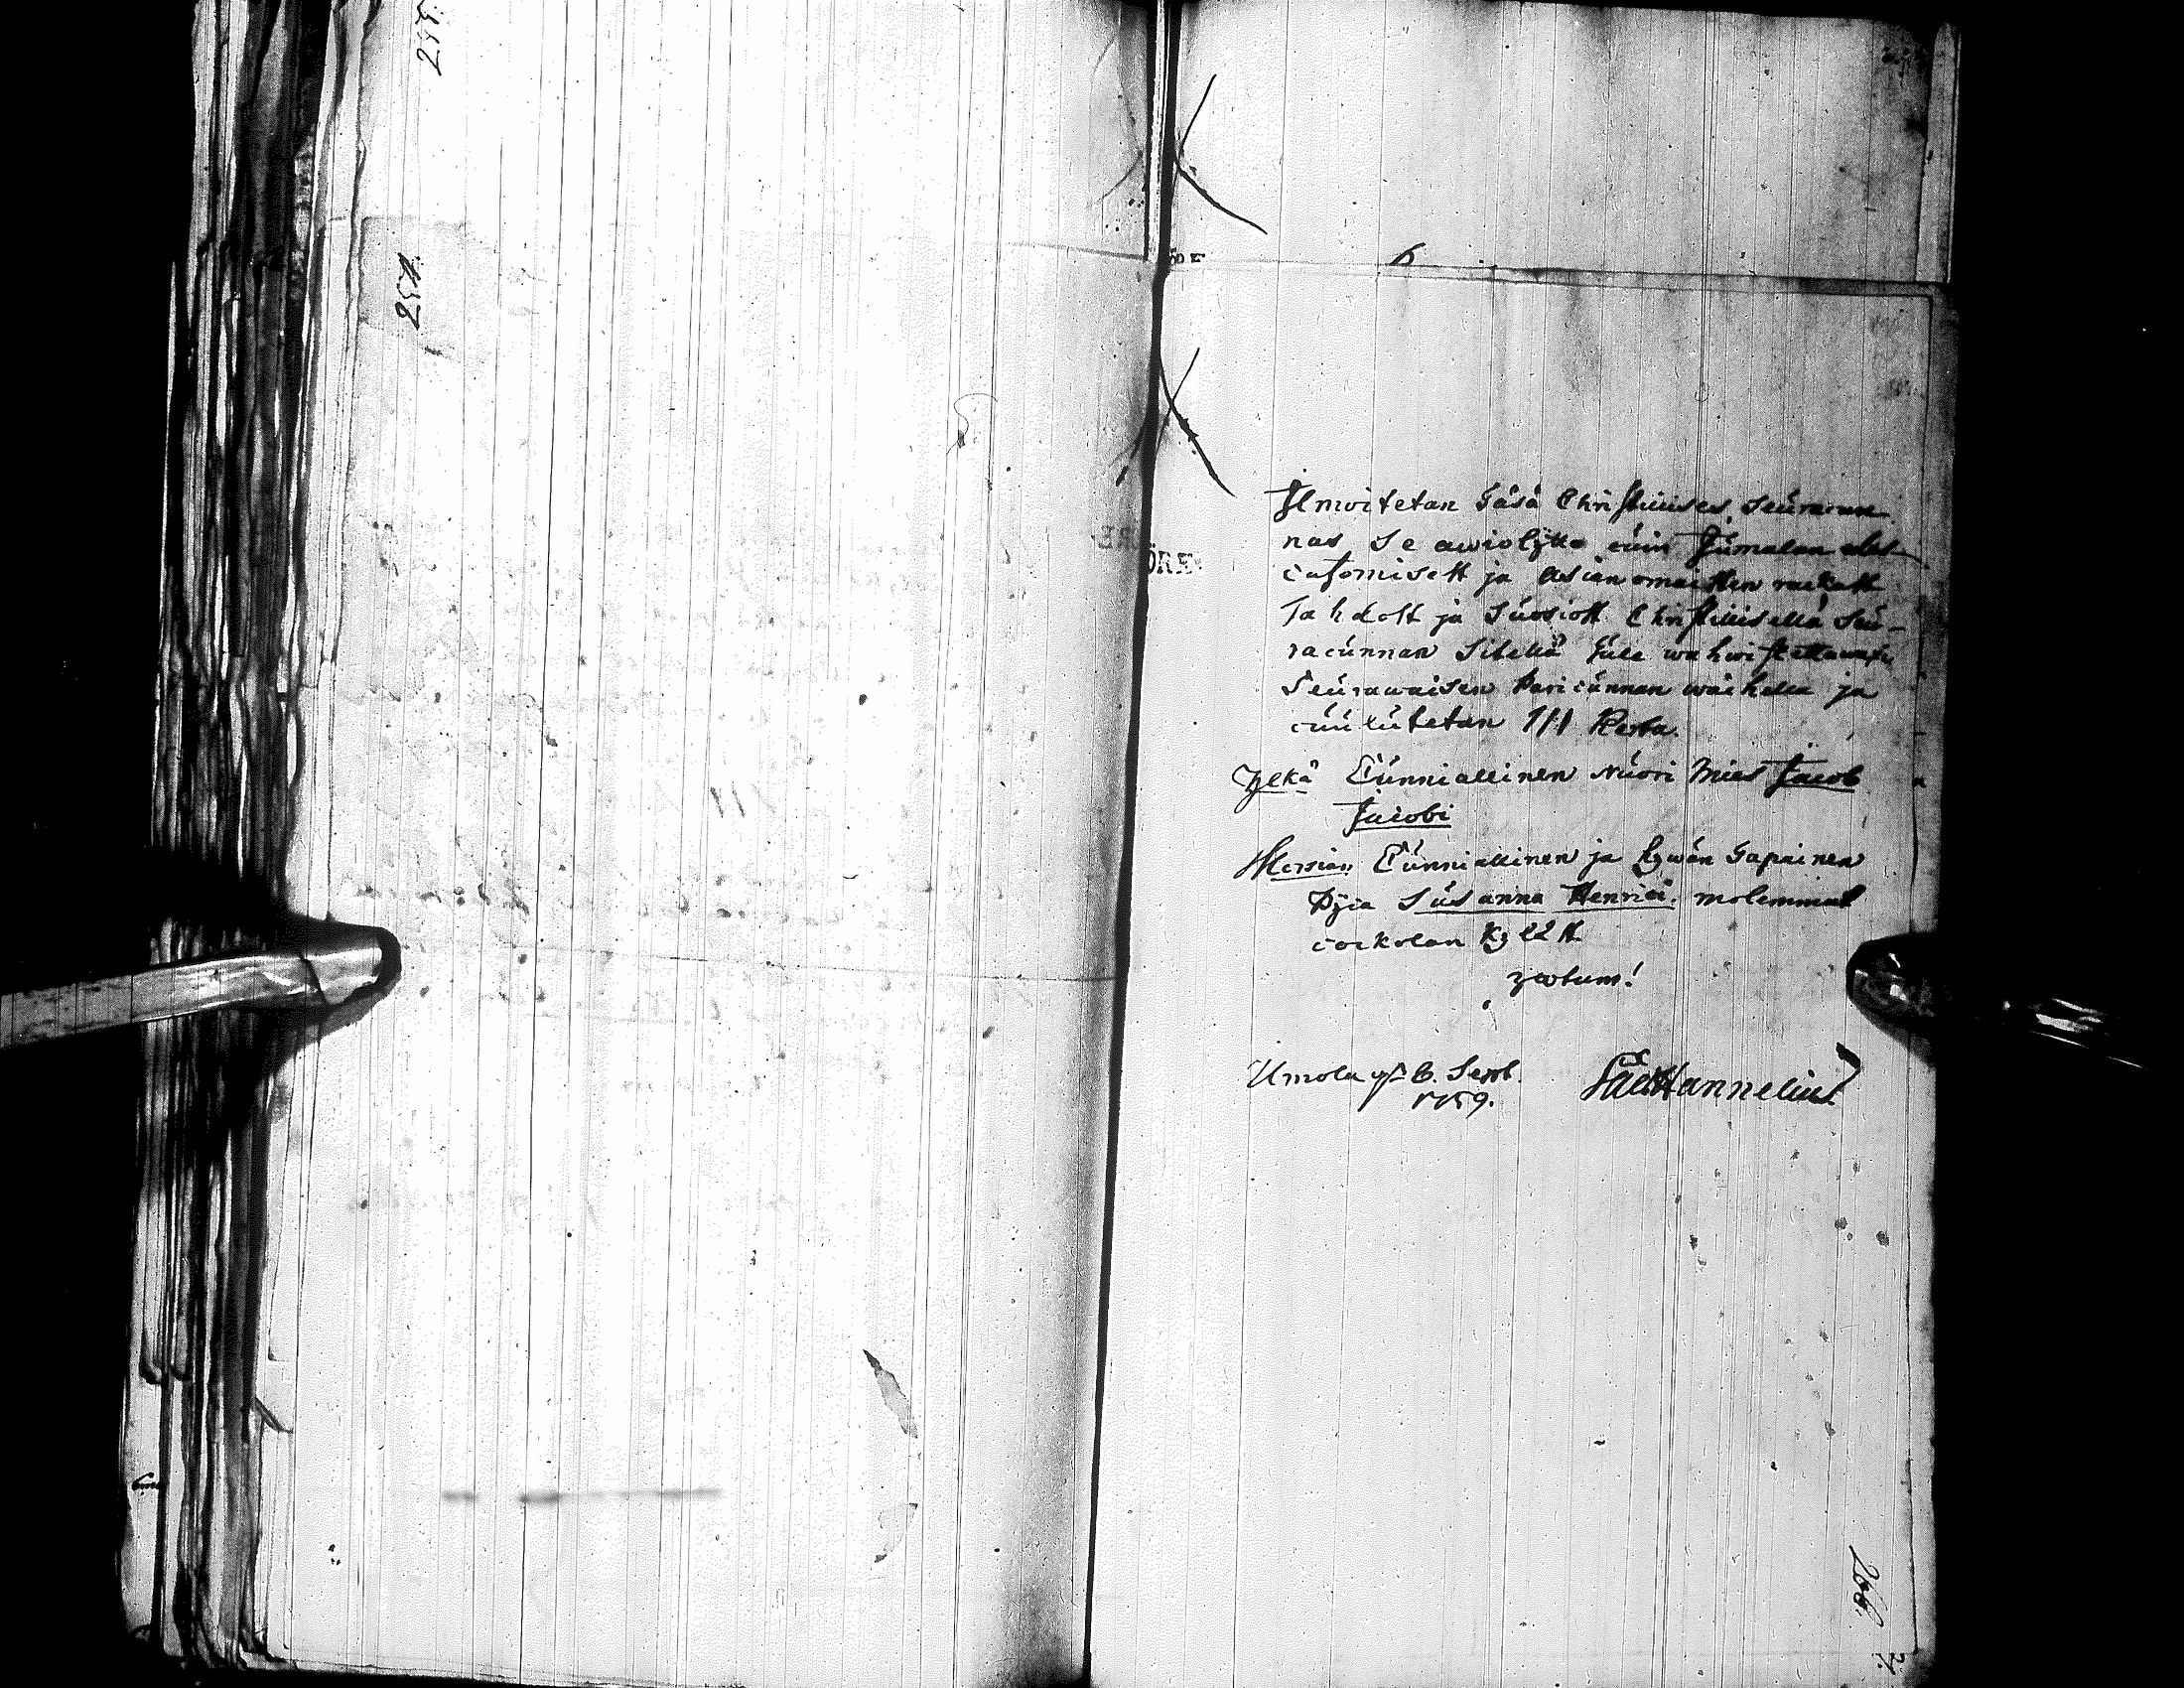 251
Ilmoitetan Täsä Christilises Seuracun-
nas se awioljtto cuin Jumalan edes-
cuzomisest ja asian omaisten rackast
Tahdost ja Suosiost Christilisellä Seu-
racunnan Sitellä Tule wahwistettawaxi
Seurawaisen Paricunnan wäihella ja
cuulutetan 1/1 Kerta.
Yljkä Cunniallinen Nuori Mies Jacob
Jacobi
Morsian Cunniallinen ja hywän Tapainen
Pijca Susanna Henrici. molemmat
cockolan Kyläst
votum!
Urmola 6.
1759. Hannelius
266.